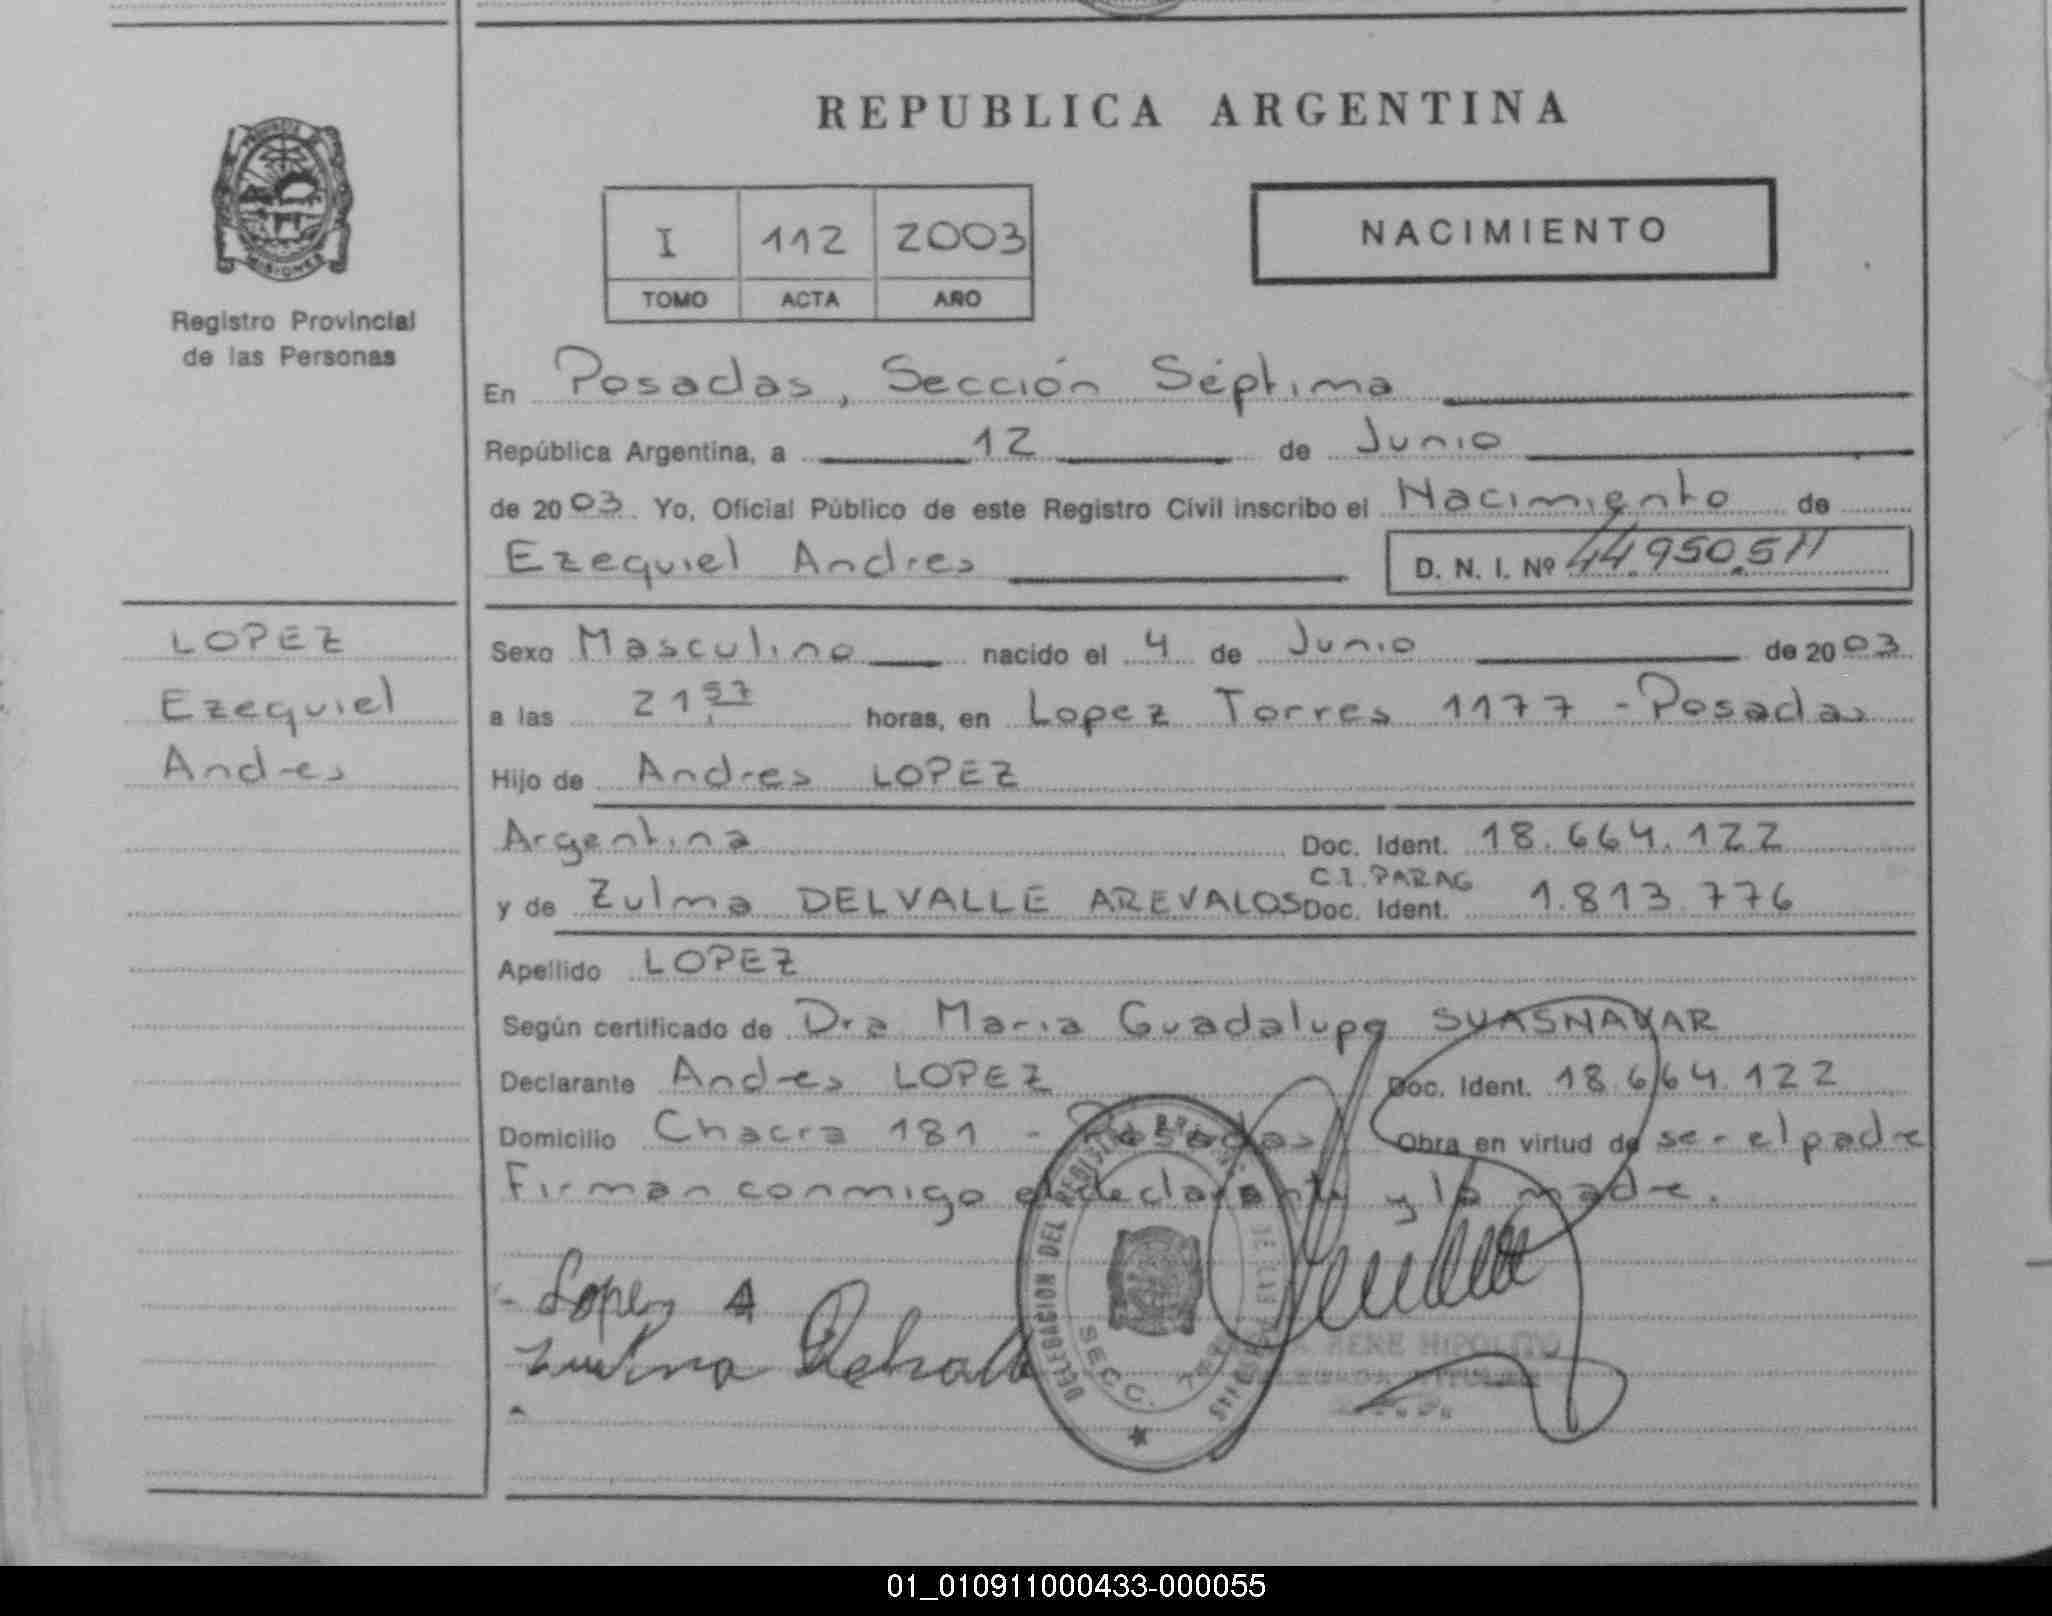 REPUBLICA ARGENTINA
I 112 2003
TOMO ACTA AÑO
NACIMIENTO
MISIONES
Registro Provincial
de las Personas
En Posadas, Sección Séptima
República Argentina, a 12 de Junio
de 2003. Yo, Oficial Público de este Registro Civil inscribo el Nacimiento de
Ezequiel Andres D. N. I. Nº 44.950.511
LOPEZ
Ezequiel
Andres
Sexo Masculino nacido el 4 de Junio de 2003
a las 21 57 horas, en Lopez Torres 1177 - Posadas
Hijo de Andres LOPEZ
Argentina Doc. Ident. 18.664.122
C.I. PARAG
y de Zulma DELVALLE AREVALOS Doc. Ident. 1.813.776
Apellido LOPEZ
Según certificado de Dra Maria Guadalupe SUASNAVAR
Declarante Andres LOPEZ Doc. Ident. 18.664.122
Domicilio Chacra 181 - Posadas Obra en virtud de ser el padre
Firman conmigo el declarante y la madre.
Lopez A
Zulma
DELEGACION DEL REGISTRO DE LAS
SECC.
RENE HIPOLITO
TITULAR
01_010911000433-000055